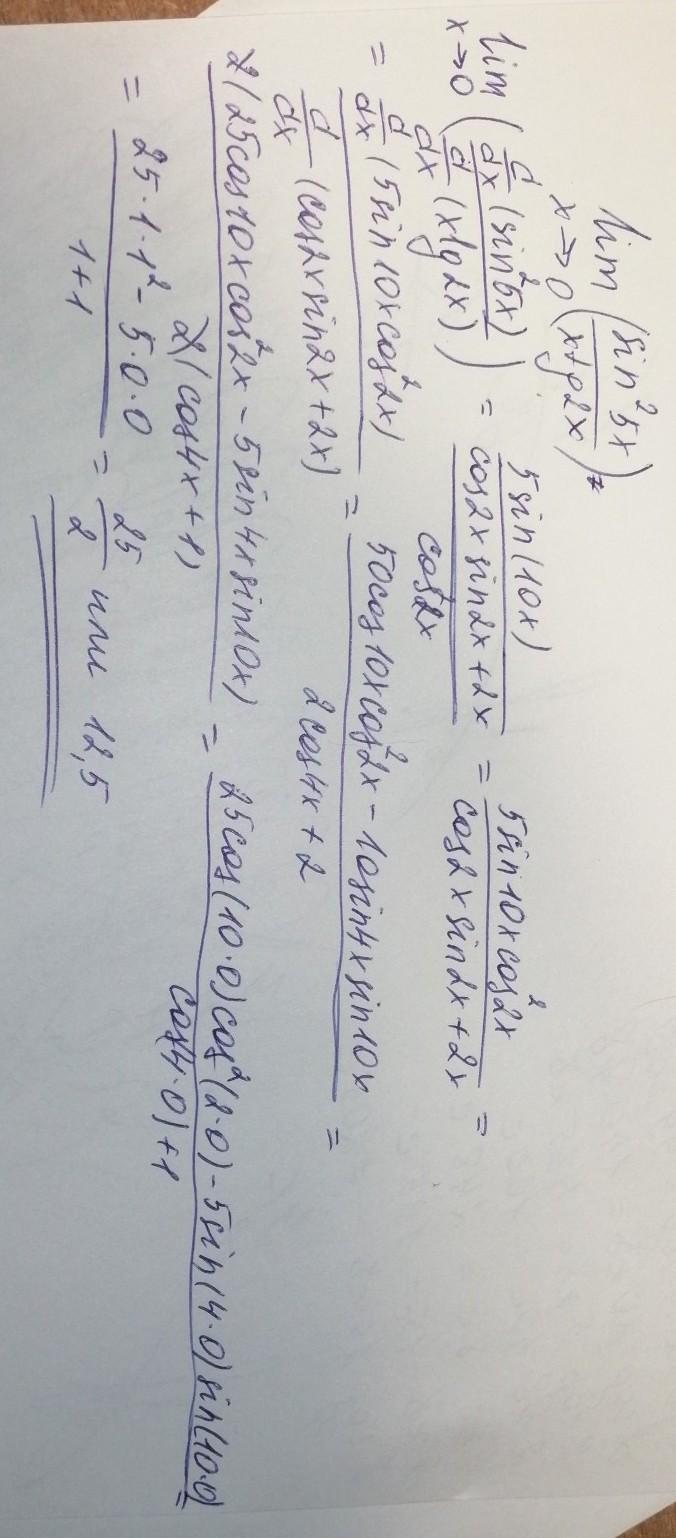 lim x→0 (sin²5x / xtg2x) =
lim x→0 (d/dx (sin²5x) / d/dx (xtg2x)) = 5sin(10x) / ((cos2x sin2x + 2x) / cos²2x) = 5sin10x cos²2x / (cos2x sin2x + 2x) =
= d/dx (5sin10x cos²2x) / d/dx (cos2x sin2x + 2x) = (50cos10x cos²2x - 10sin4x sin10x) / (2cos4x + 2) =
2(25cos10x cos²2x - 5sin4x sin10x) / 2(cos4x + 1) = (25cos(10·0) cos²(2·0) - 5sin(4·0) sin(10·0)) / (cos(4·0) + 1) =
= (25·1·1² - 5·0·0) / (1+1) = 25/2 или 12,5